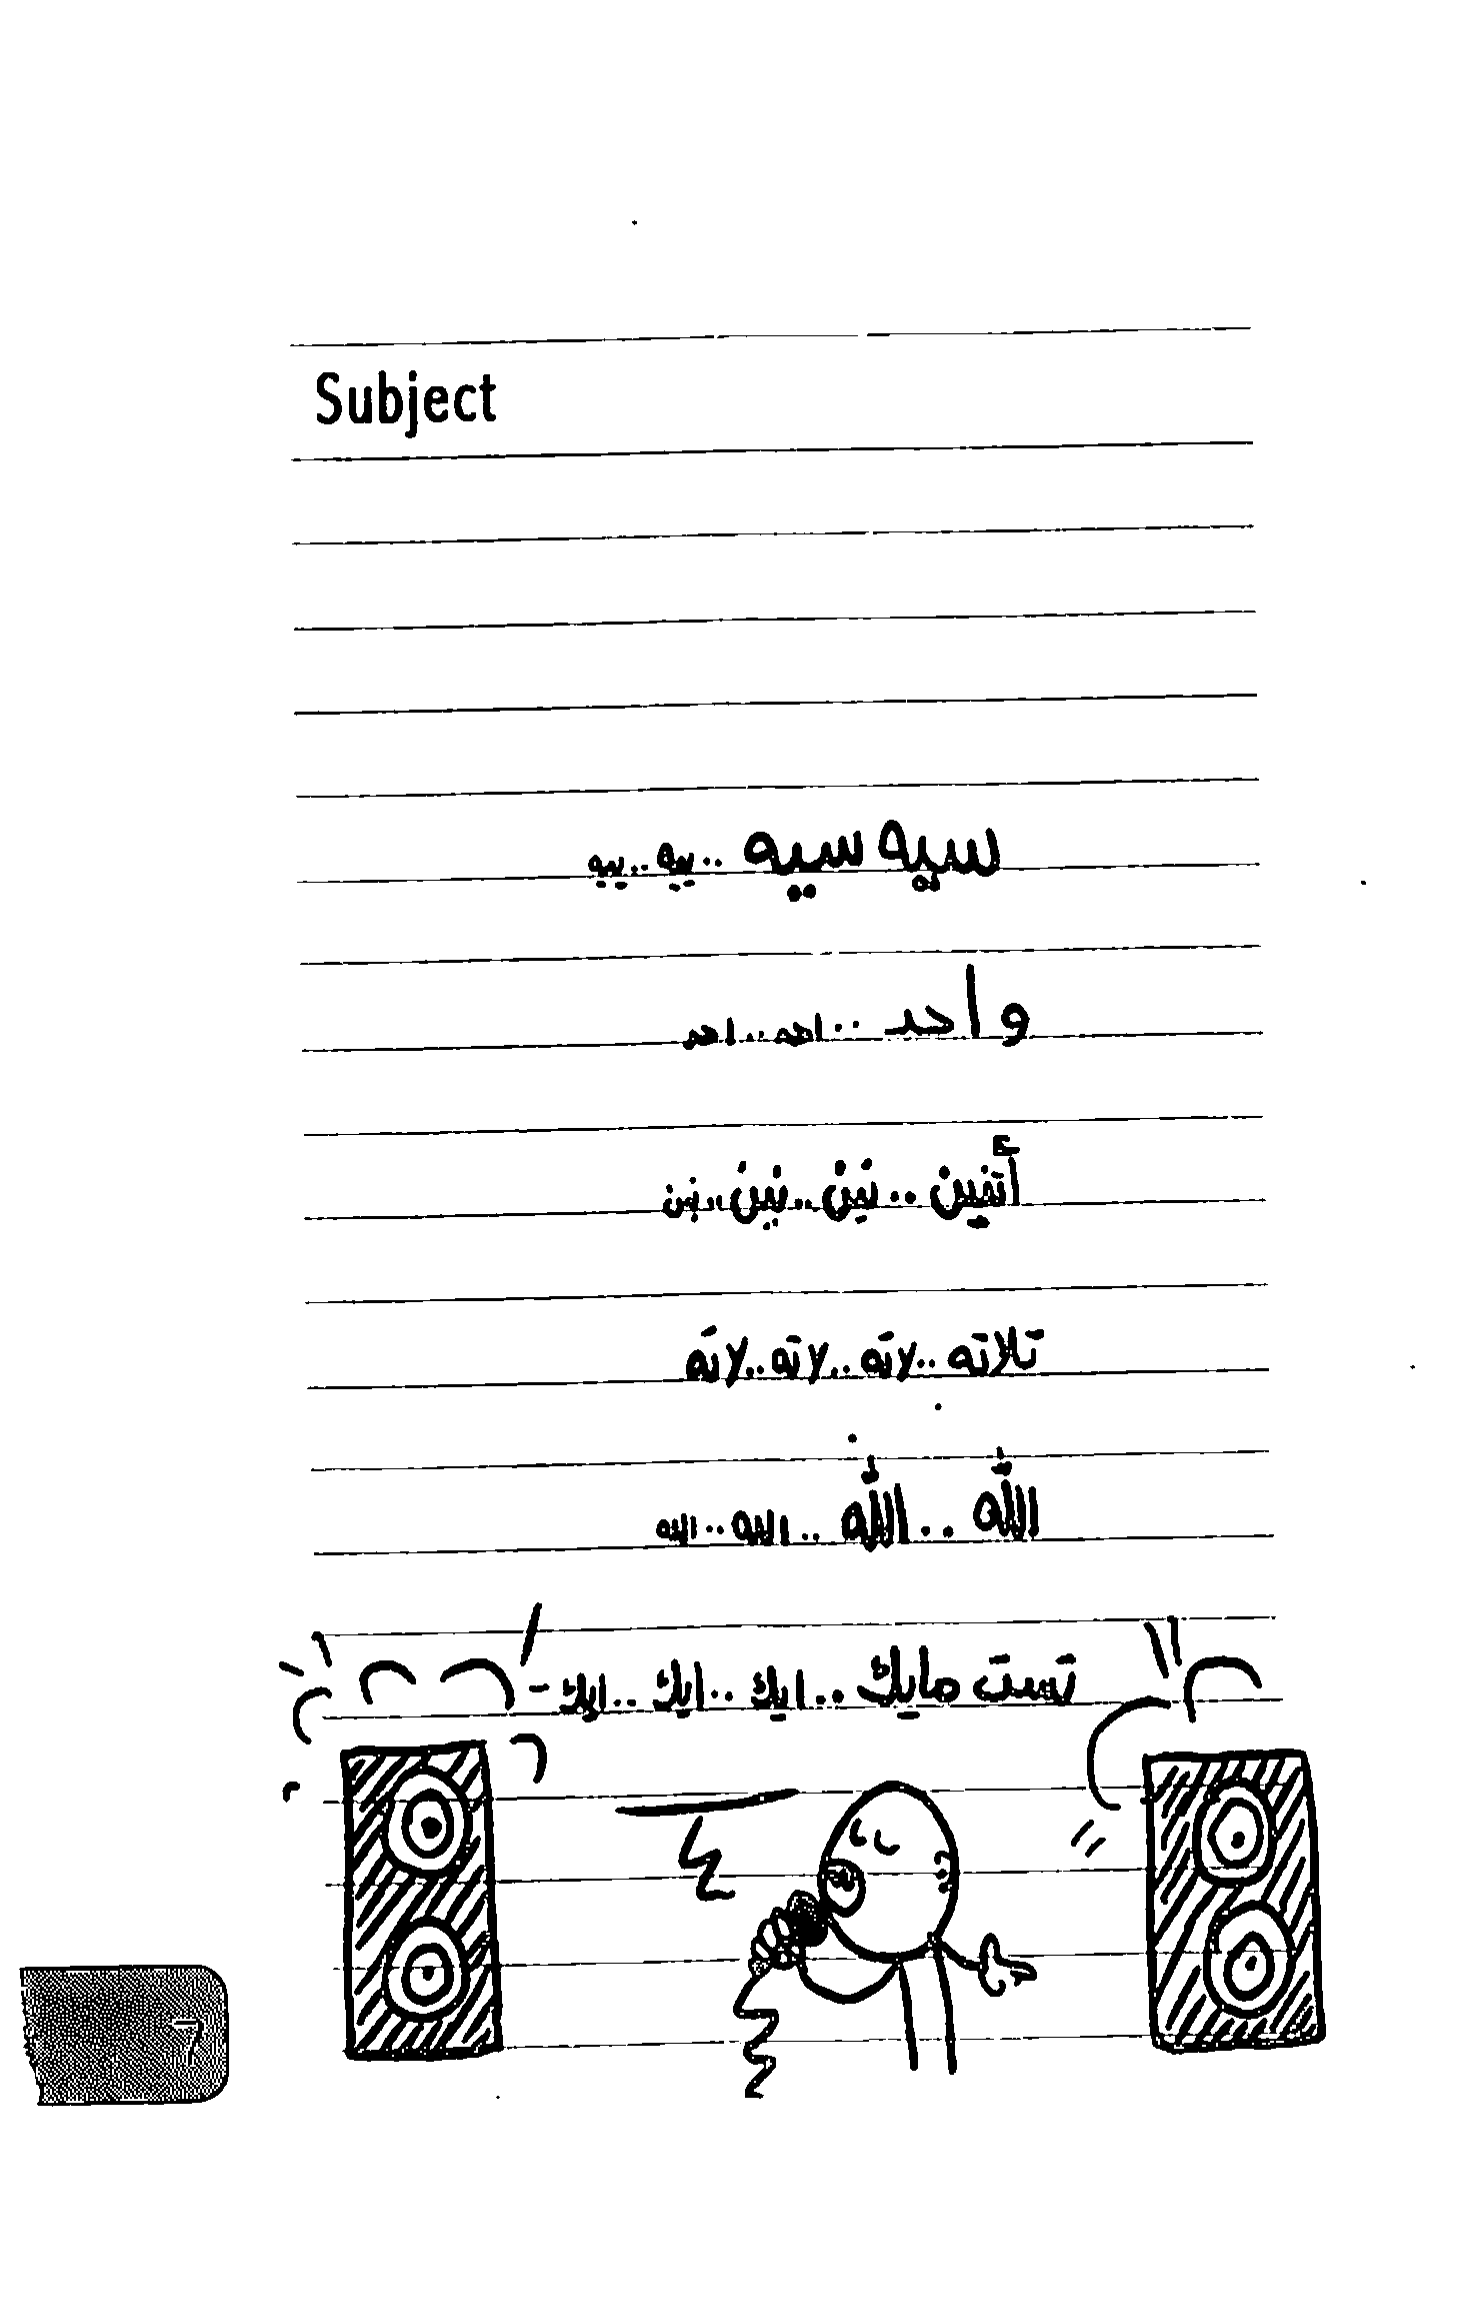 Subject
سيه سيه ..يه ..يه
واحد ..احد ..احد
أتنين ..نين ..نين ..نين
تلاته ..لاته ..لاته ..لاته
الله ..الله ..الله ..الله
تست مايك ..ايك ..ايك ..ايك -
7